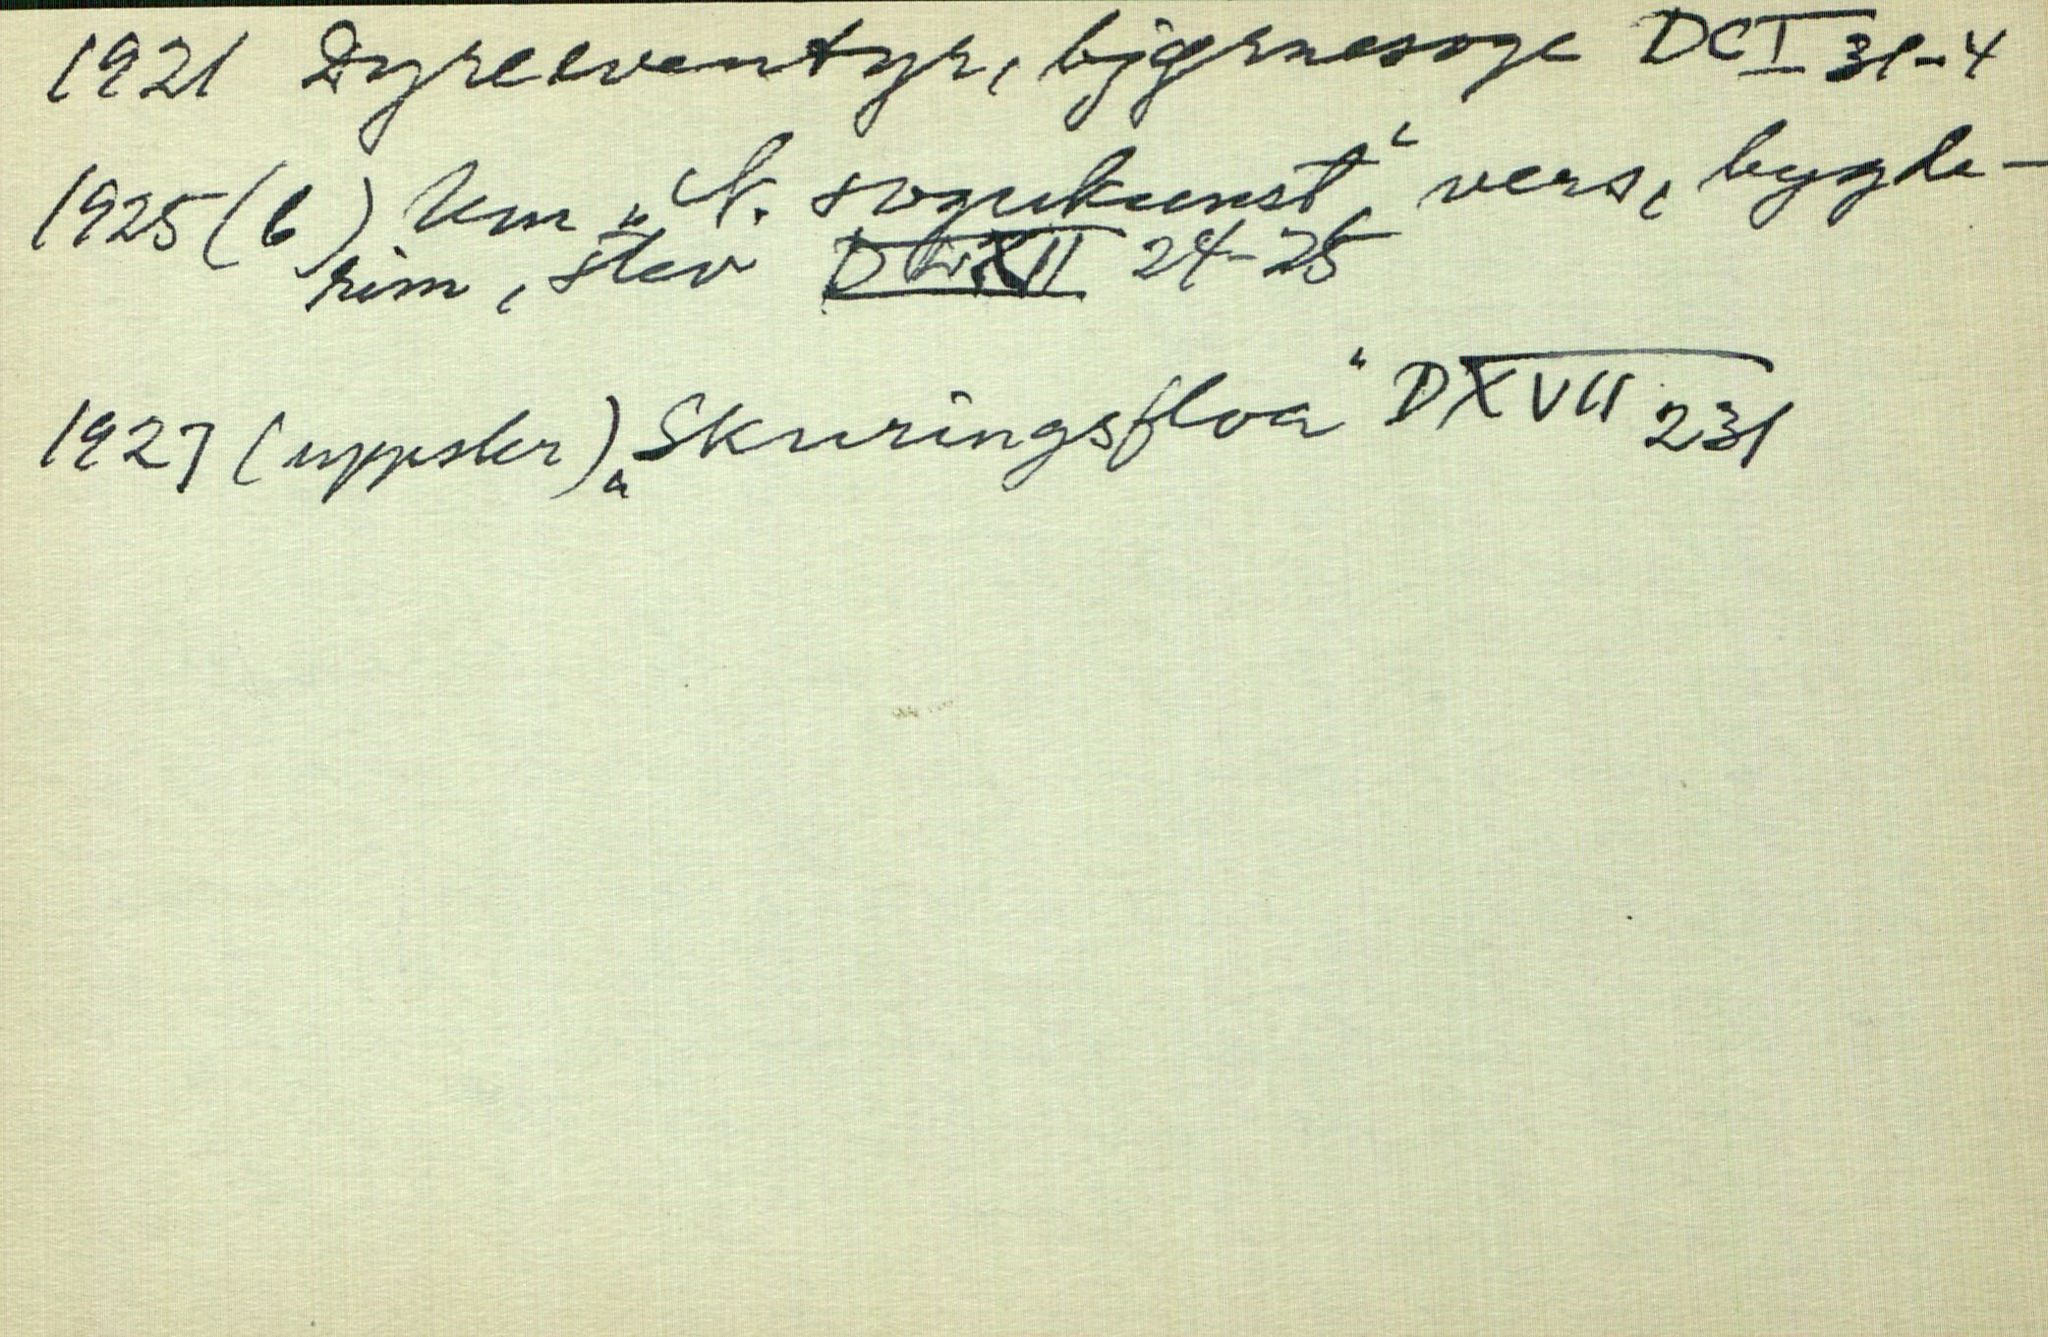 1921 Dyreeventyr, bjørnesoge DCI 31-4
1925 (b) Um „N. sogukunst“, vers, bygde-
rim, stev XII 24-25
1927 (uppskr) „Skuringsfloa“ DXVII 231